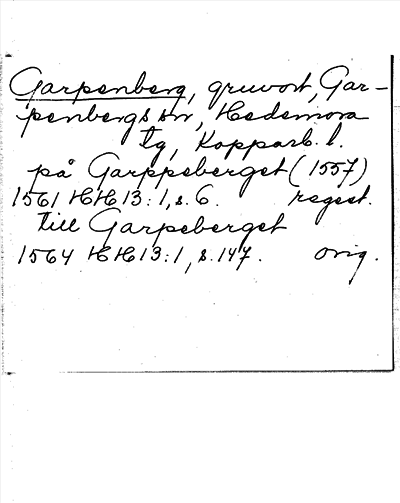 Garpenberg, gruvort, Gar-
penbergs sn, Hedemora
tg, Kopparb. l.
på Garppeberget (1557)
1561 HH 13:1, s. 6. regest.
till Garpeberget
1564 HH 13:1, s. 147. orig.